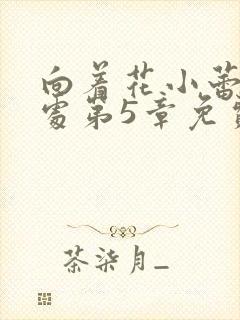 向着花.小蕾
处第5章免费
茶柒月_